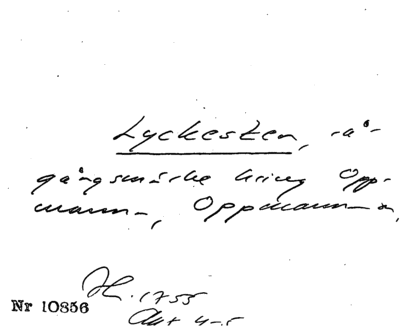 Lyckesten, rå-
gångsmärke kring Opp-
manna-, Oppmanna,
Nr 10856
H. 1755
Akt 4-5